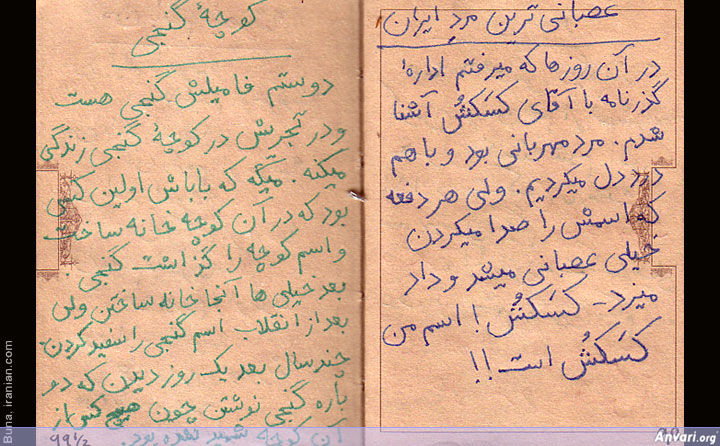 عصبانی ترین مرد ایران
در آن روزها که میرفتم ادارهٔ
گذرنامه با آقای کَسکُش آشنا
شدم. مرد مهربانی بود و باهم
درد دل میکردیم. ولی هر دفعه
که اسمش را صدا میکردن
خیلی عصبانی میشد و داد
میزد - کَسکُش! اسم من
کَسکُش است!!
کوچهٔ گنجی
دوستم فامیلش گنجی هست
و در تجریش در کوچهٔ گنجی زندگی
میکنه. میگه که باباش اولین کسی
بود که در آن کوچه خانه ساخت
و اسم کوچه را گذاشت گنجی
بعد خیلی ها آنجا خانه ساختن ولی
بعد از انقلاب اسم گنجی را سفید کردن
چند سال بعد یک روز دیدن که دو
باره گنجی نوشتن چون هیچ کس از
آن کوچه شهید نشده بود.
99 1/2
Buna, iranian.com
Anvari.org